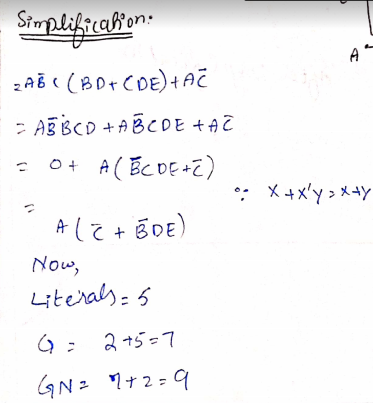 Simplification:
A
= AB̄C (BD + CDE) + AC̄
= AB̄BCD + AB̄CDE + AC̄
= 0 + A(B̄CDE + C̄)
∵ X + X'y = X + y
=
A(C̄ + B̄DE)
Now,
Literals = 5
G = 2+5=7
GN = 7+2=9